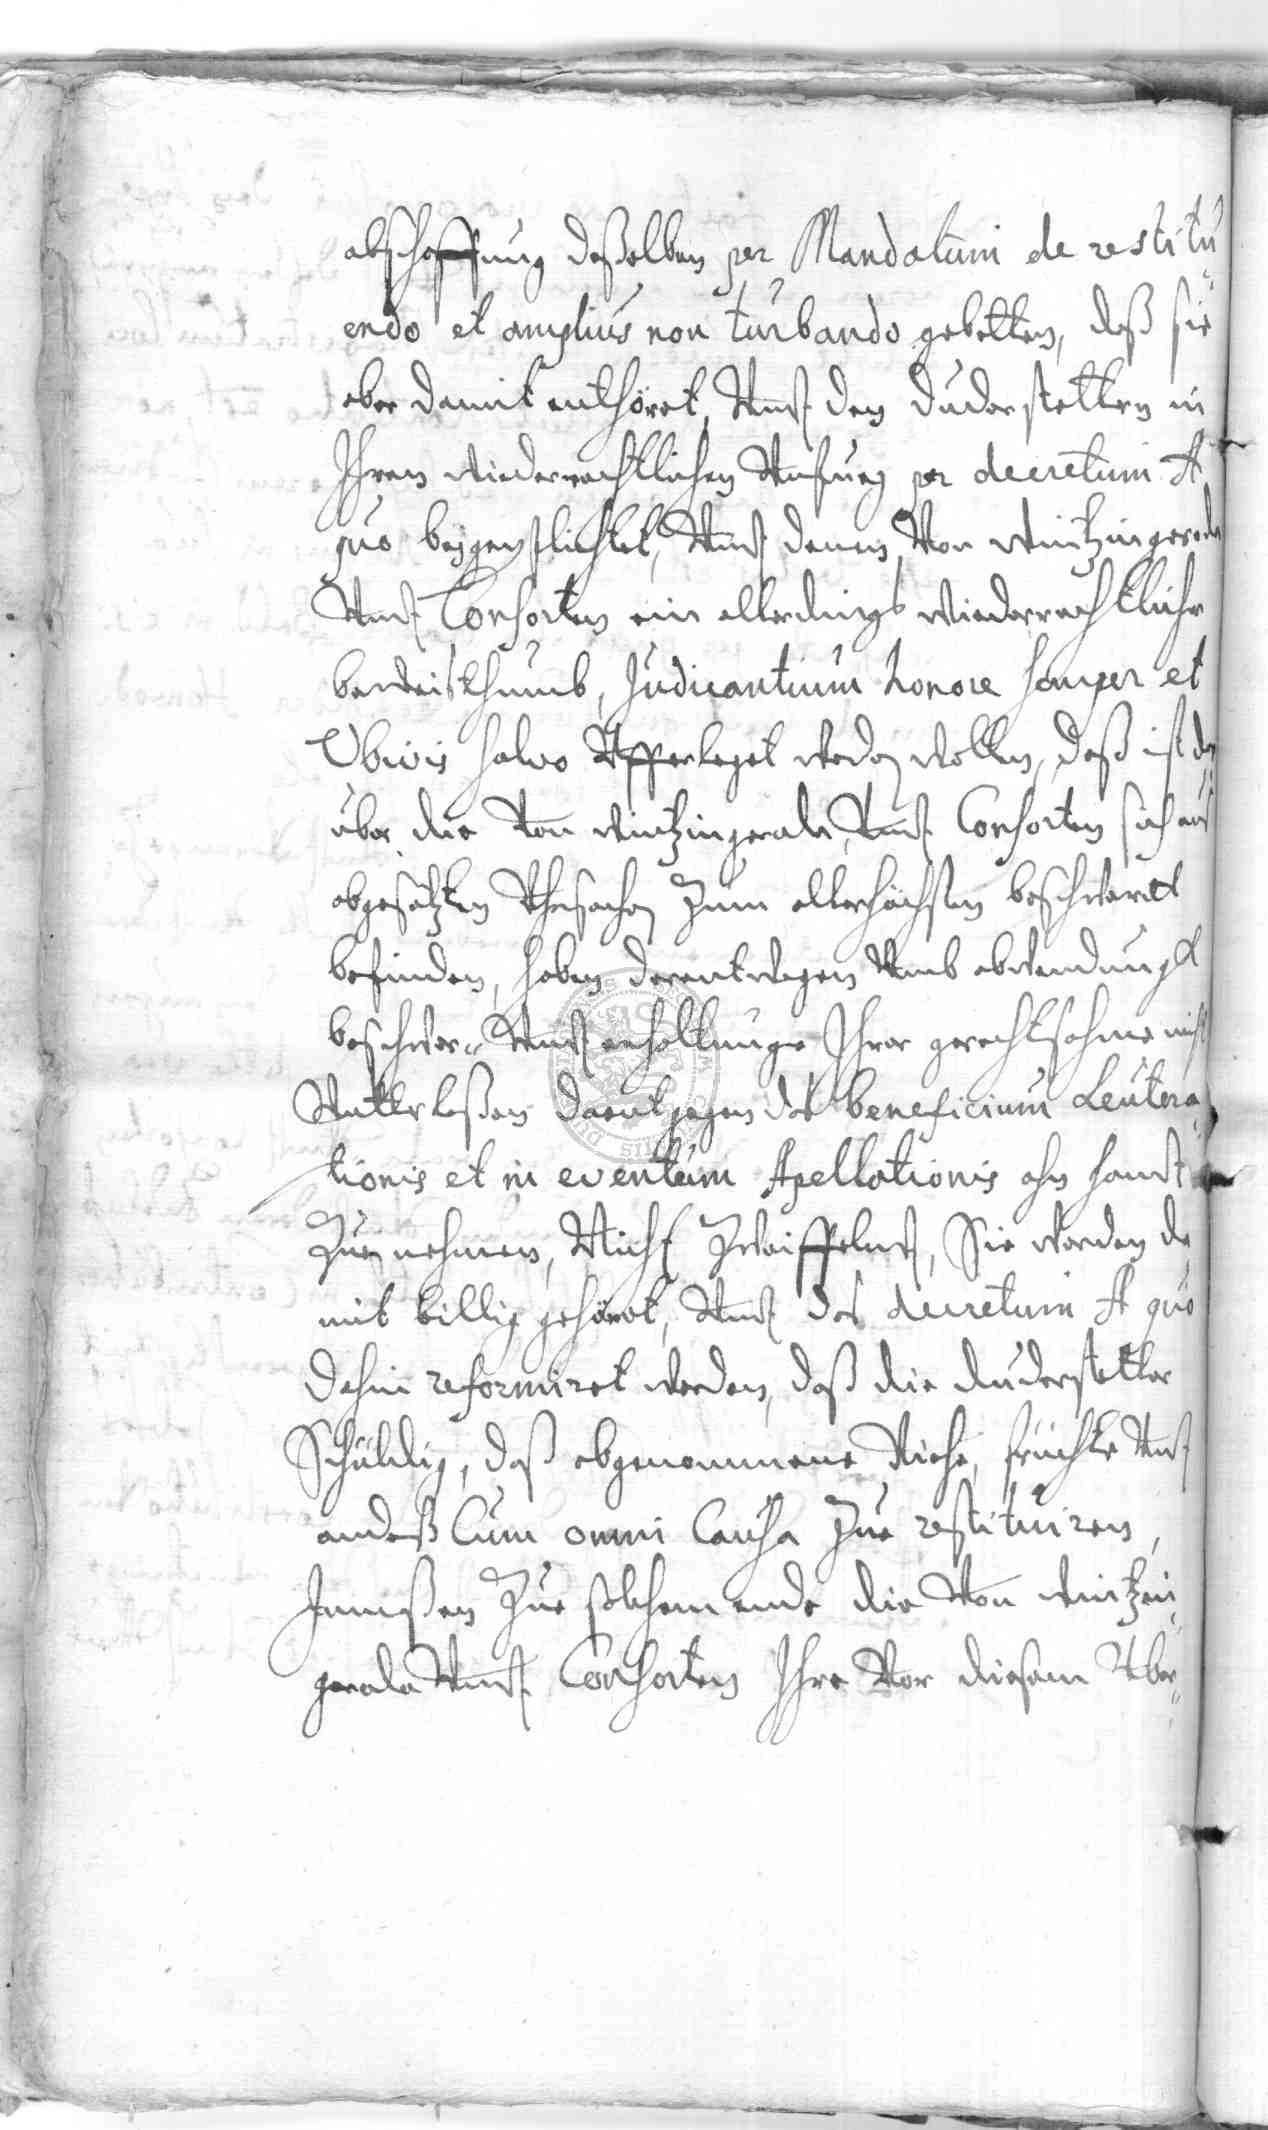 abschaffung deßelben per Mandatum de restitu
endo et amplius non turbando gebetten, daß sie
aber damit enthöret, Vnd den Duderstetten in
Ihrem wiederrechtlichen Vnfueg per decretum A
quo beygepflichtet, Vnd denen Von Wintzingerode
Vnd Consorten ein allerdings wiederrechtlichr
beweisthumb, Judicantium honore semper et
Vbivis salvo Vfferleget werden wollen, daß ist dar
über die Von Wintzingerode, Vnd Consorten sich aus
obgesetzten Vhrsachen Zum allerhöchsten beschweret
befinden, haben derentwegen Vmb abwendung
beschwer= Vnd erhaltunge Ihrer gerechtsahme nicht
Vnterlaßen darentgegen das beneficium Leutera
tionis et in eventum Apellationis ahn handt
Zue nehmen, Nicht Zweiffelnd, Sie werden da
mit billig gehöret, Vnd das decretum A quo
dahin reformiret werden, daß die Duderstetter
Schuldig, daß abgenommene Viehe, früchte Vnd
anders Cum omni Causa Zue restituiren,
Inmaßen Zue solchem ende die Von Wintzin
gerode Vnd Consorten Ihre Vor diesem Vber=